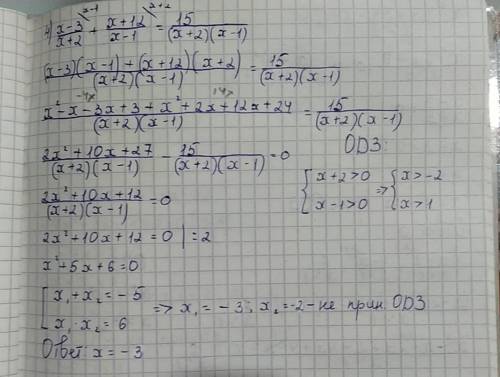 4) x-3/x+2 + x+12/x-1 = 15/(x+2)(x-1)
(x-3)(x-1)+(x+12)(x+2)/(x+2)(x-1) = 15/(x+2)(x-1)
-4x 14x
x²-x-3x+3+x²+2x+12x+24/(x+2)(x-1) = 15/(x+2)(x-1)
2x²+10x+27/(x+2)(x-1) - 15/(x+2)(x-1) = 0
ОДЗ:
2x²+10x+12/(x+2)(x-1) = 0
{ x+2>0 => { x>-2
x-1>0 x>1
2x²+10x+12=0 |:2
x²+5x+6=0
[ x₁+x₂=-5
x₁·x₂=6
=> x₁=-3; x₂=-2- не прин. ОДЗ
Ответ: x=-3